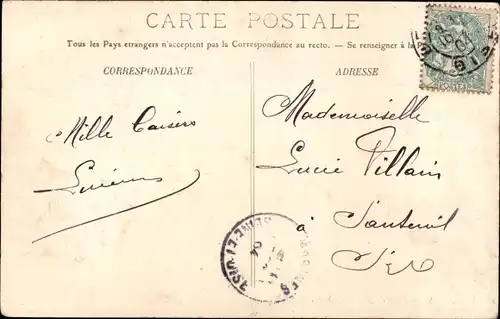 CARTE POSTALE
Tous les Pays etrangers n'acceptent pas la Correspondance au recto. — Se renseigner à la
CORRESPONDANCE
ADRESSE
Mille Baisers
Lucienne
Mademoiselle
Lucie Villain
à Santeuil
S et O
SEINE-ET-OISE